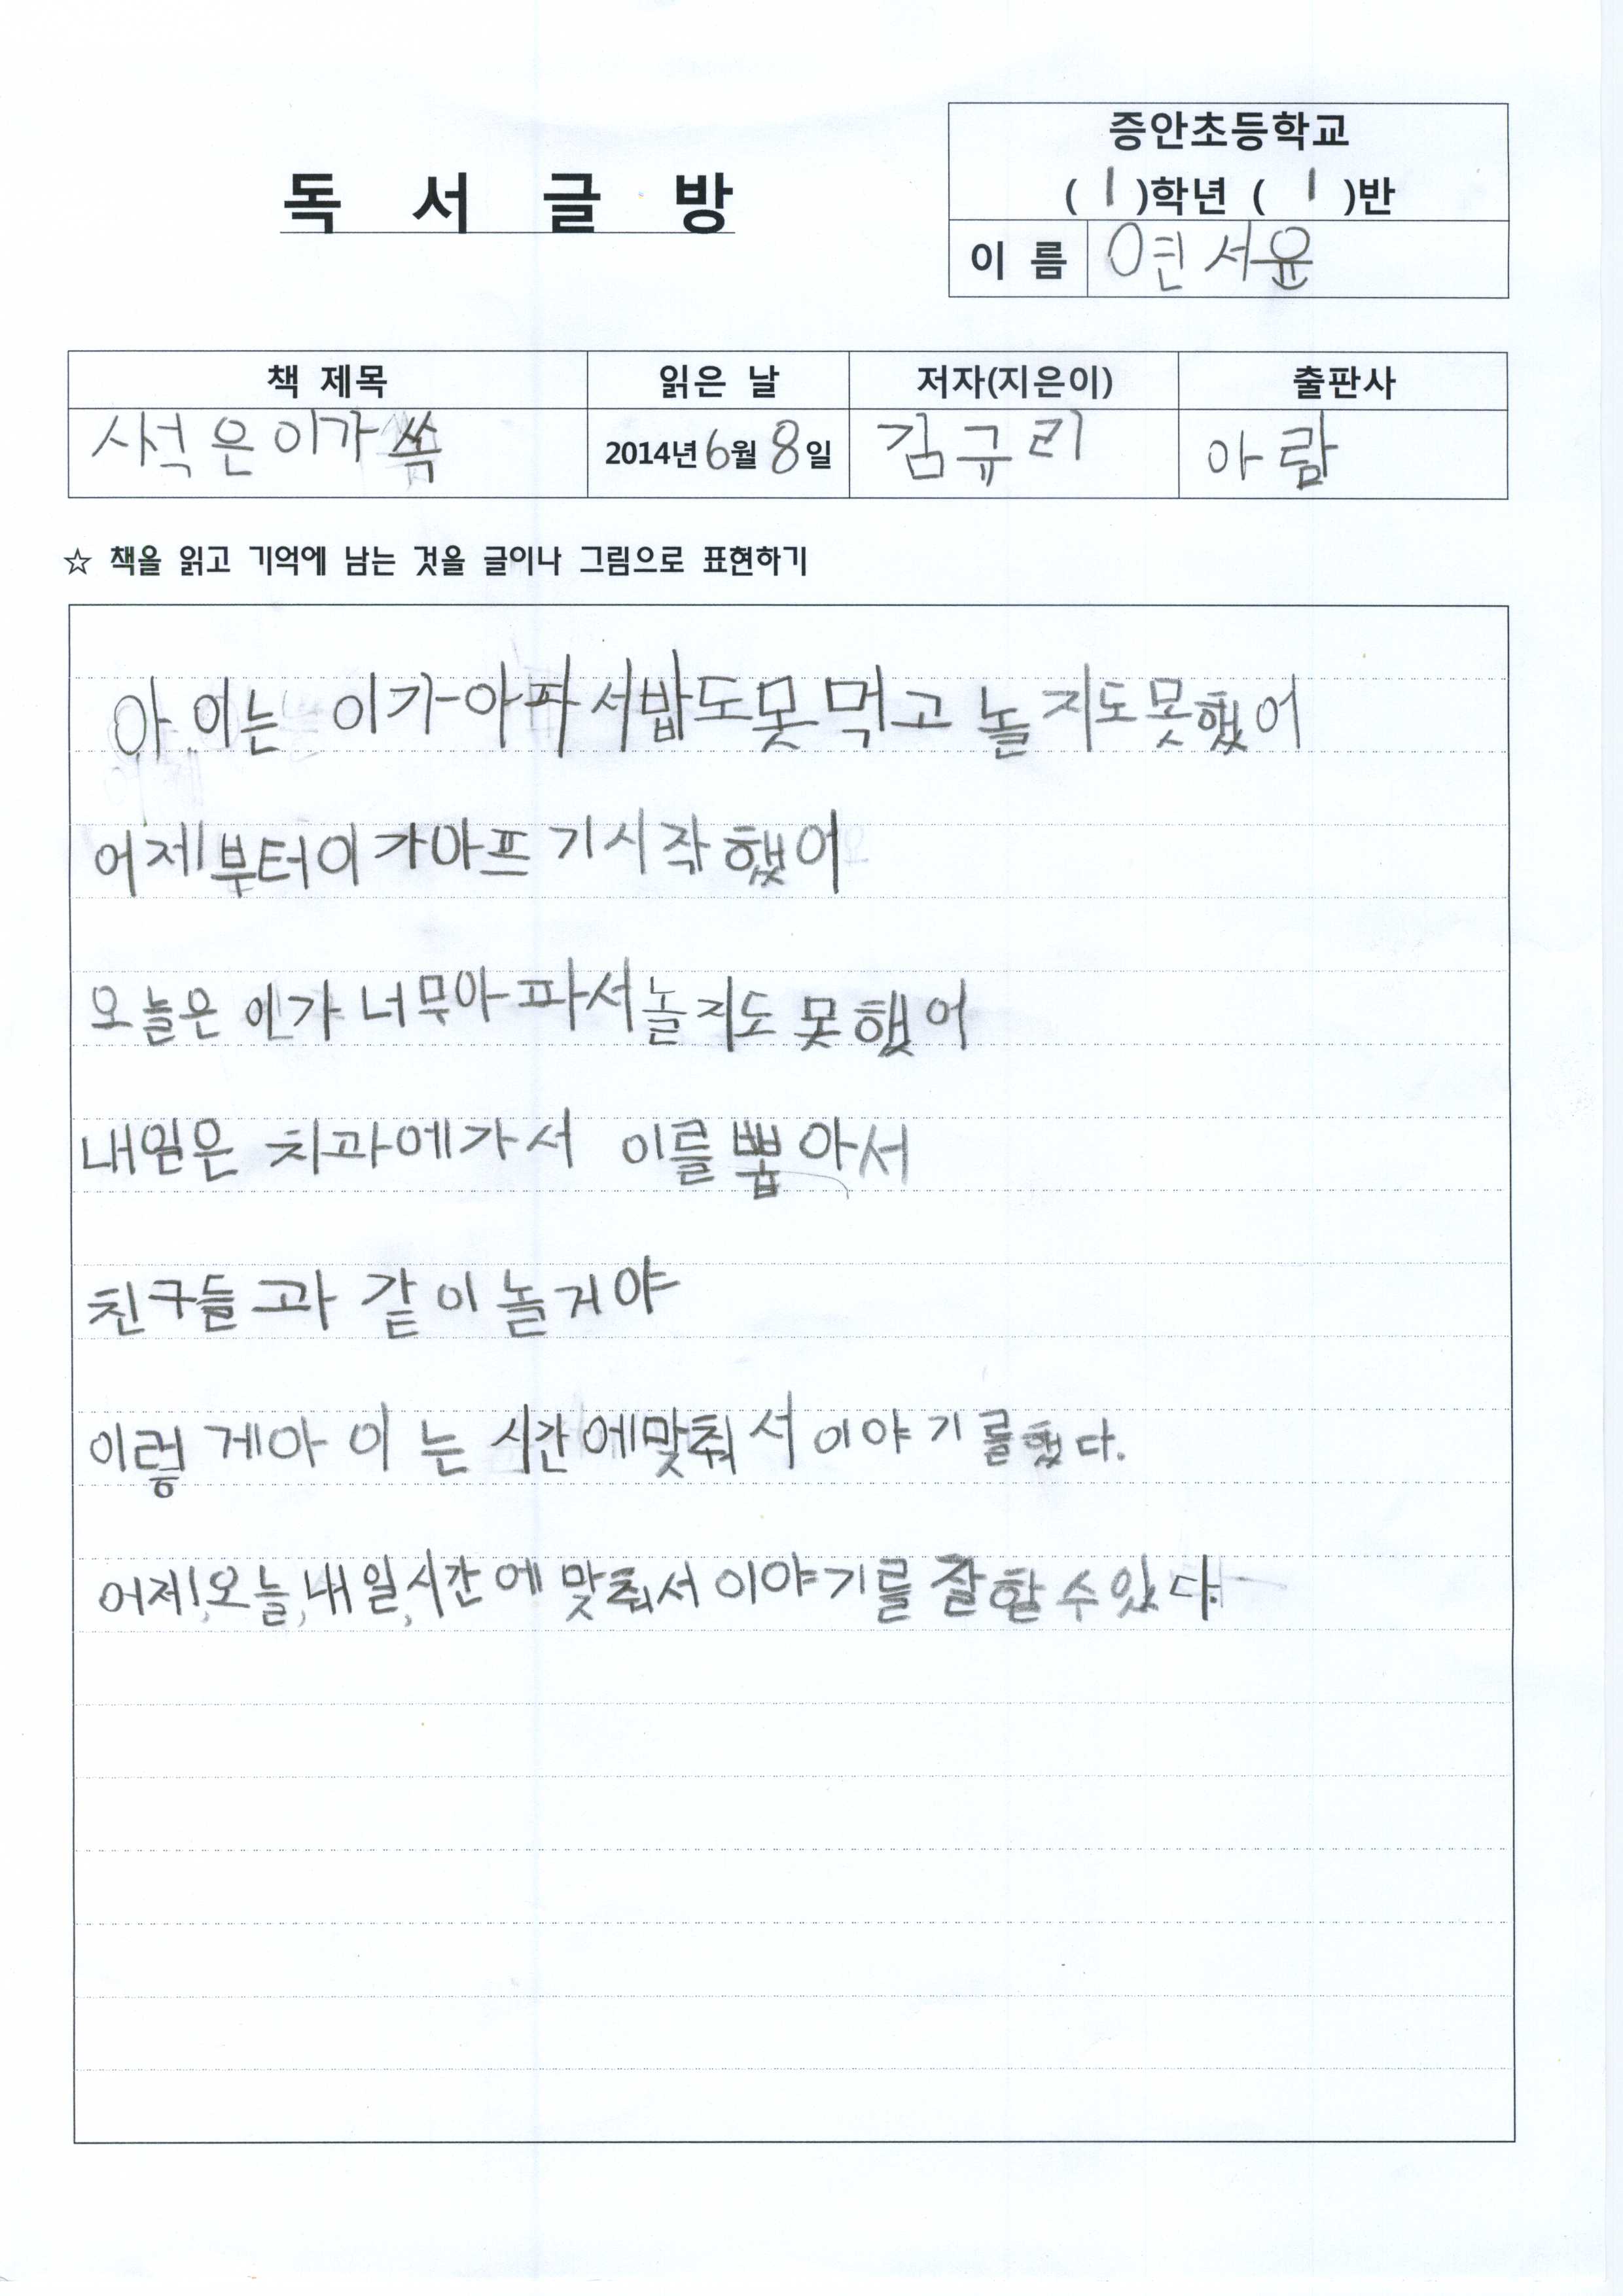 증안초등학교
독 서 글 방
( 1 )학년 ( 1 )반
이 름 연서윤
책 제목 읽은 날 저자(지은이) 출판사
은이가쏙 2014년 6월 8일 김규리 아람
☆ 책을 읽고 기억에 남는 것을 글이나 그림으로 표현하기
아이는 이가아파서밥도못먹고 놀지도못했어
어제부터이가아프기시작했어
오늘은 이가 너무아파서놀지도 못했어
내일은 치과에가서 이를 뽑아서
친구들과 같이놀거야
이렇게아이는 시간에맞춰서 이야기를했다.
어제,오늘,내일,시간에 맞춰서이야기를 잘할수있다.